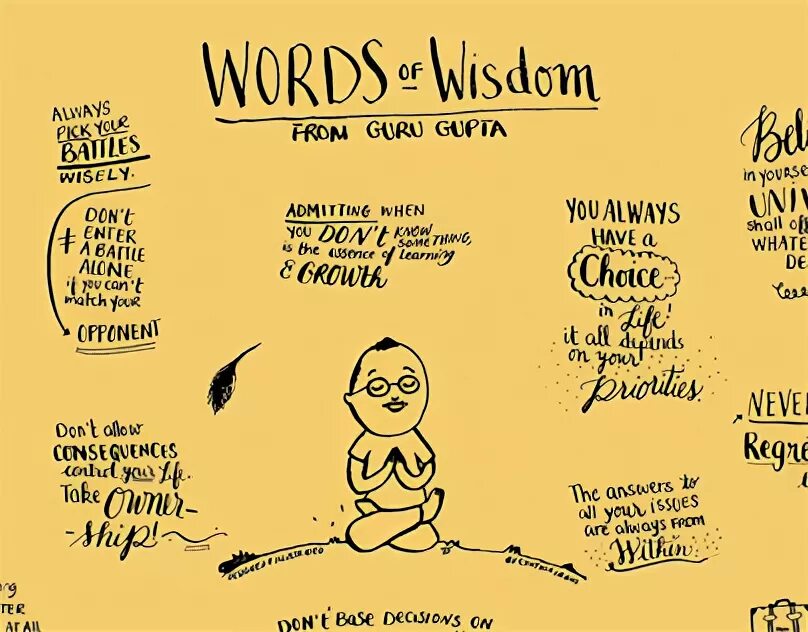 WORDS OF WISDOM
FROM GURU GUPTA
ALWAYS
PICK YOUR
BATTLES
WISELY.
DON'T
ENTER
A BATTLE
ALONE
if you can't
match your
OPPONENT
ADMITTING WHEN
YOU DON'T KNOW
SOMETHING,
is the essence of learning
& GROWTH
YOU ALWAYS
HAVE A
Choice
in Life!
it all depends
on your
Priorities.
Bel
in yourse
UNIV
shall of
WHATE
DE
Don't allow
CONSEQUENCES
control your life.
Take Owner-
-ship!
NEVER
Regre
The answers to
all your issues
are always from
Within.
DESIGNED &
TER
AT ALL
DON'T BASE DECISIONS ON